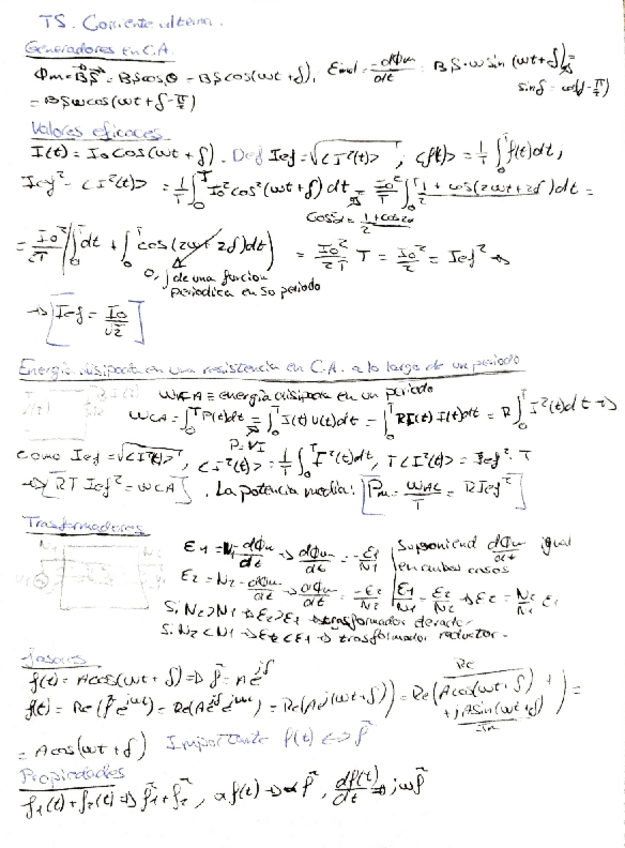 T5. Corriente alterna.
Generadores en C.A.
Φm = B⃗·S⃗ = BS cos θ = BS cos(ωt + δ), Eind = -dΦm/dt = BS·ω sin(ωt + δ) =
sin δ = cos(δ - π/2)
= BSω cos(ωt + δ - π/2)
Valores eficaces
I(t) = I₀ cos(ωt + δ). Def Ief = √<I²(t)>, <f(t)> = 1/T ∫₀ᵀ f(t)dt,
Ief² = <I²(t)> = 1/T ∫₀ᵀ I₀² cos²(ωt + δ) dt = I₀²/T ∫₀ᵀ (1 + cos(2ωt + 2δ))/2 dt =
cos²α = (1 + cos 2α)/2
= I₀²/2T (∫₀ᵀ dt + ∫₀ᵀ cos(2ωt + 2δ)dt) = I₀²/2T T = I₀²/2 = Ief² →
0, ∫ de una función
periodica en su periodo
→ [Ief = I₀/√2]
Energía disipada en una resistencia en C.A. a lo largo de un periodo
WCA ≡ energía disipada en un periodo
WCA = ∫₀ᵀ P(t)dt = ∫₀ᵀ I(t) V(t)dt = ∫₀ᵀ RI(t) I(t)dt = R ∫₀ᵀ I²(t)dt →
P = VI
como Ief = √<I²(t)>, <I²(t)> = 1/T ∫₀ᵀ I²(t)dt, T<I²(t)> = Ief² · T
→ [RT Ief² = WCA]. La potencia media: [Pm = WAC/T = R Ief²]
Trasformadores
E1 = -N1 dΦm/dt → dΦm/dt = -E1/N1 | Suponiend dΦm/dt igual
en ambos casos
E2 = N2 -dΦm/dt → dΦm/dt = -E2/N2 | E1/N1 = E2/N2 → E2 = N2/N1 E1
Si N2 > N1 → E2 > E1 → trasformador elevador
Si N2 < N1 → E2 < E1 → trasformador reductor.
Fasores
f(t) = A cos(ωt + δ) ⇒ f̃ = A e^jδ
f(t) = Re(f̃ e^jωt) = Re(A e^jδ e^jωt) = Re(A e^j(ωt + δ)) = Re(A cos(ωt + δ) +
+ jA sin(ωt + δ)) =
Re
Im
= A cos(ωt + δ) Importante f(t) ⇔ f̃
Propiedades
f₁(t) + f₂(t) ⇒ f̃₁ + f̃₂, α f(t) → α f̃, df(t)/dt ⇒ jω f̃